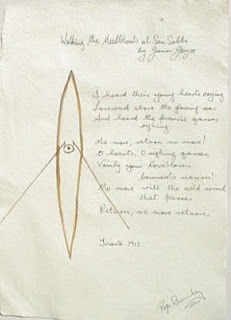 Watching the Needleboats at San Sabba
by James Joyce
I heard their young hearts crying
Loveward above the glancing oar
And heard the prairie grasses
sighing:
No more, return no more!
O hearts, O sighing grasses,
Vainly your loveblown
bannerets mourn!
No more will the wild wind
that passes
Return, no more return.
Trieste 1912.